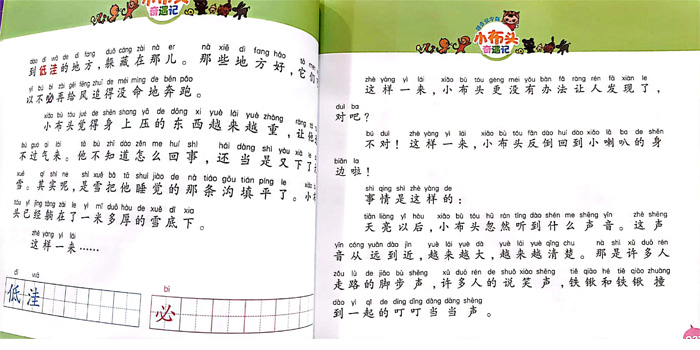 小布头
奇遇记
dào dī wā de dì fang duǒ cáng zài nà er nà xiē dì fang hǎo tā
到低洼的地方,躲藏在那儿。那些地方好,它们
yǐ bú bì zài gěi fēng zhuī de méi mìng de bēn pǎo
以不必再给风追得没命地奔跑。
xiǎo bù tóu jué de shēn shang yā de dōng xi yuè lái yuè zhòng ràng tā
小布头觉得身上压的东西越来越重,让他
bú guò qì lái tā bù zhī dào zěn me huí shì hái dāng shì yòu xià le
不过气来。他不知道怎么回事,还当是又下了
xuě qí shí ne shì xuě bǎ tā shuì jiào de nà tiáo gōu tián píng le
雪。其实呢,是雪把他睡觉的那条沟填平了。小
tóu yǐ jīng tǎng zài le yì mǐ duō hòu de xuě dǐ xia
头已经躺在了一米多厚的雪底下。
zhè yàng yì lái
这样一来……
dī wā
低洼
bì
必
小布头
奇遇记
zhè yàng yì lái xiǎo bù tóu gèng méi yǒu bàn fǎ ràng rén fā xiàn le
这样一来,小布头更没有办法让人发现了,
duì ba
对吧?
bú duì zhè yàng yì lái xiǎo bù tóu fǎn dào huí dào xiǎo lǎ ba de shēn
不对!这样一来,小布头反倒回到小喇叭的身
biān la
边啦!
shì qing shì zhè yàng de
事情是这样的:
tiān liàng yǐ hòu xiǎo bù tóu hū rán tīng dào shén me shēng yīn zhè shēng
天亮以后,小布头忽然听到什么声音。这声
yīn cóng yuǎn dào jìn yuè lái yuè dà yuè lái yuè qīng chu nà shì xǔ duō rén
音从远到近,越来越大,越来越清楚。那是许多人
zǒu lù de jiǎo bù shēng xǔ duō rén de shuō xiào shēng tiě qiāo hé tiě qiāo zhuàng
走路的脚步声,许多人的说笑声,铁锹和铁锹撞
dào yì qǐ de dīng dīng dāng dāng shēng
到一起的叮叮当当声。